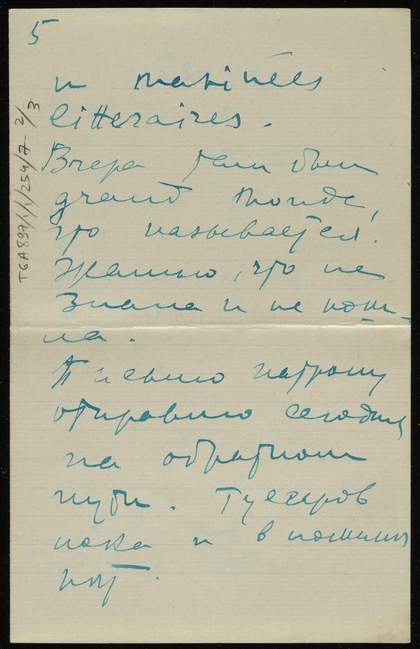 5
и matinées
litteraires.
Вчера там был
grand monde,
что называется.
Жалею, что не
знала и не пош-
ла.
Письмо патрону
отправлю сегодня
на обратном
пути.
пока и в помине
нет.
TGA 897/1/1/254/7 2/3